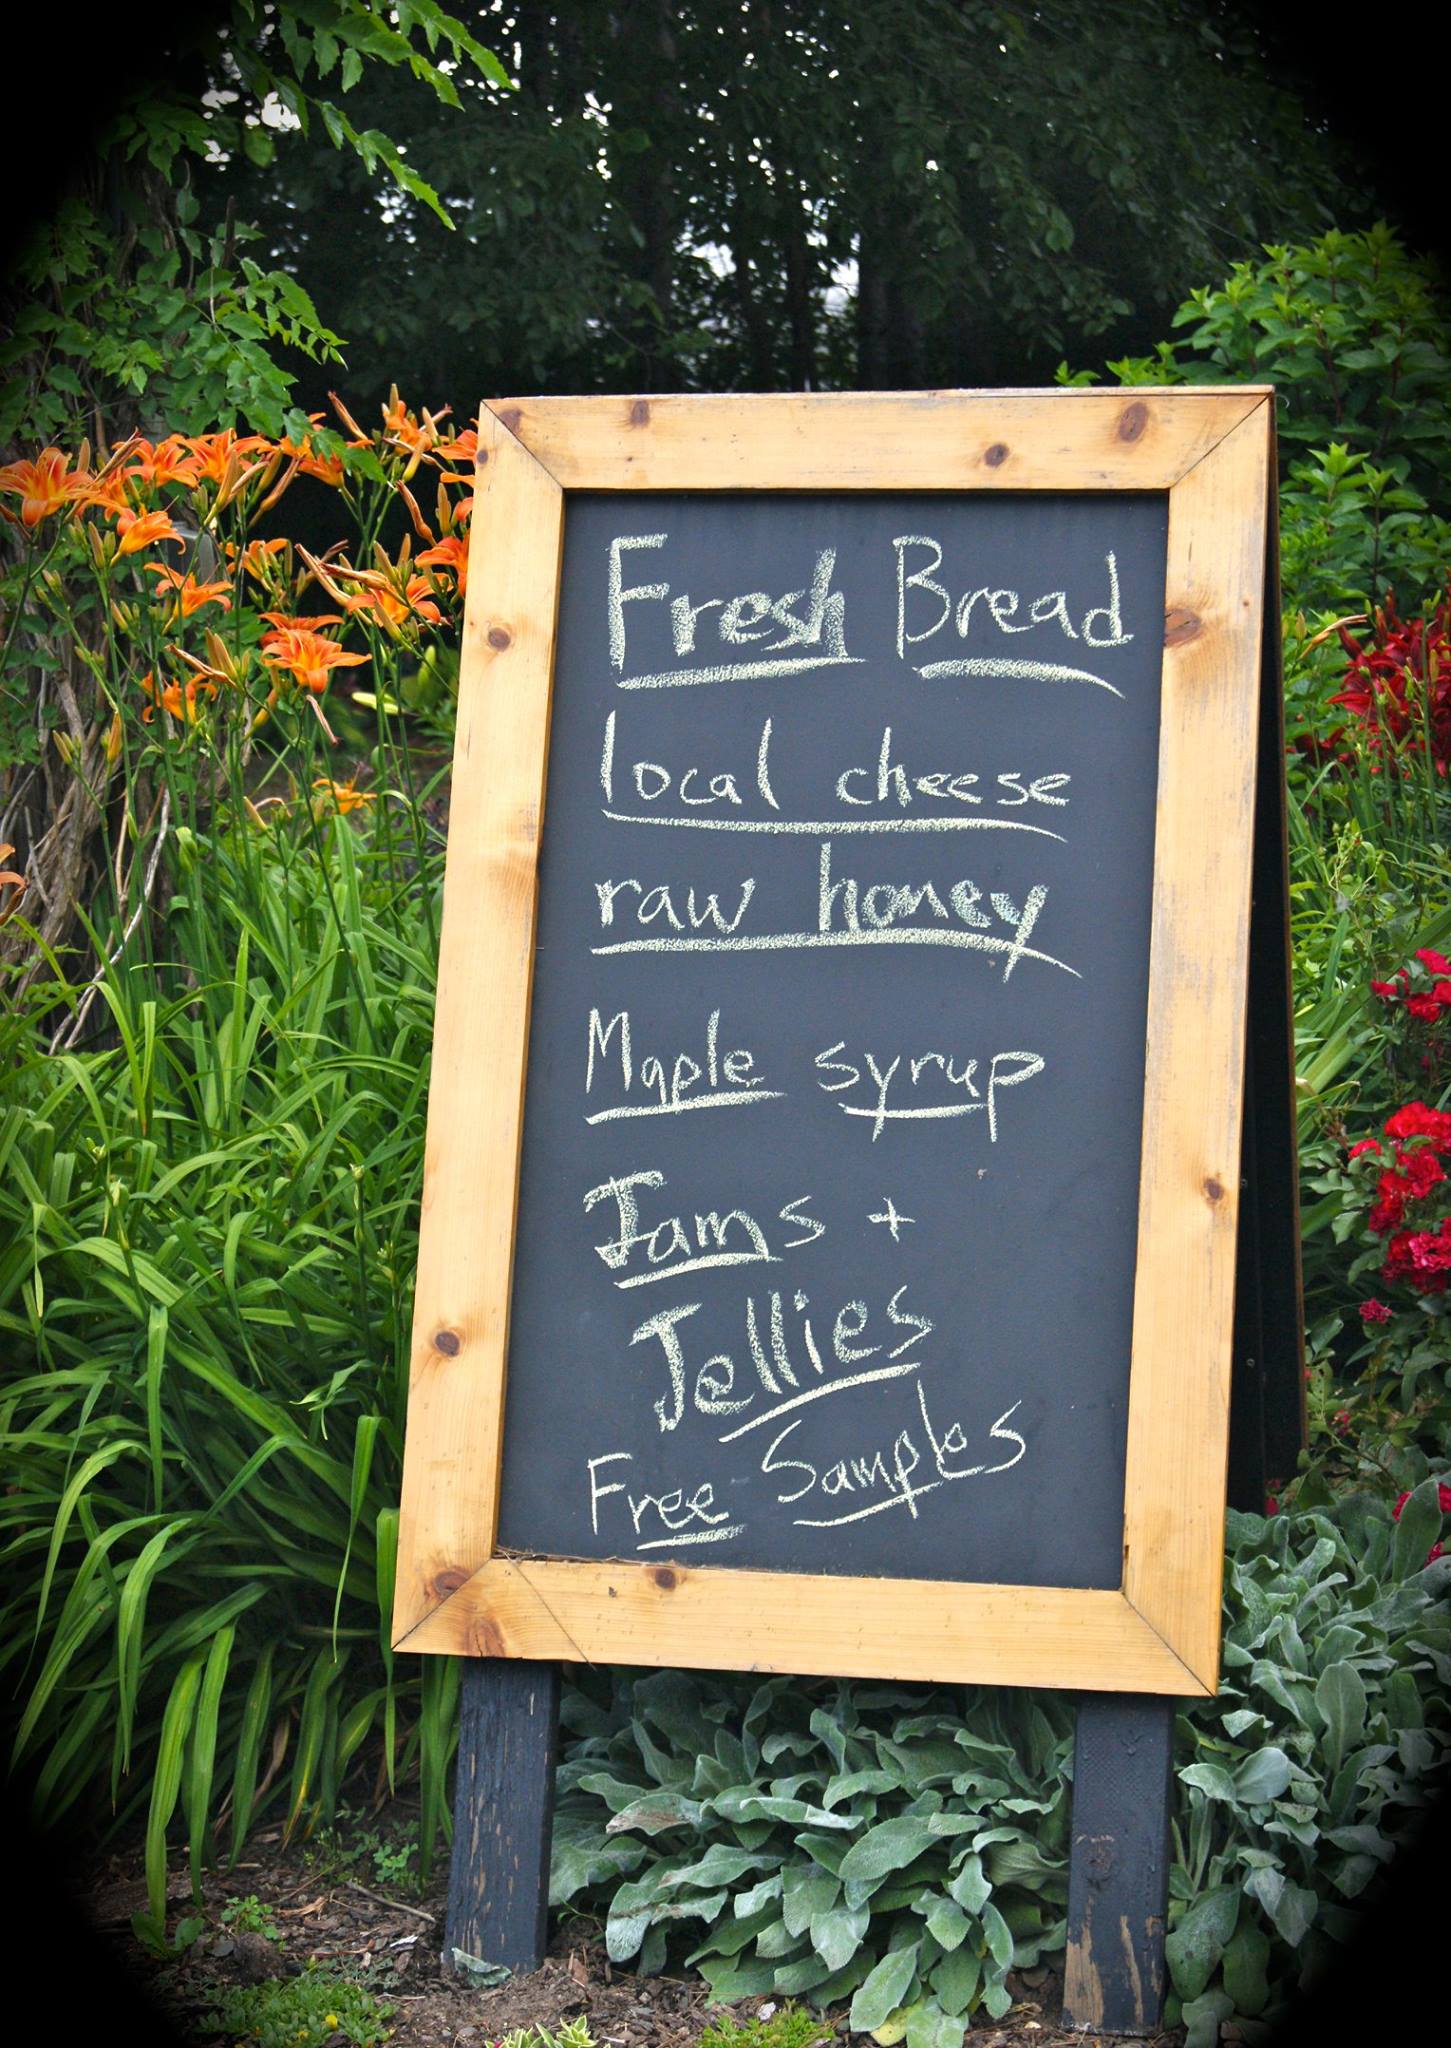 Fresh Bread
local cheese
raw honey
Maple syrup
Jams +
Jellies
Free Samples